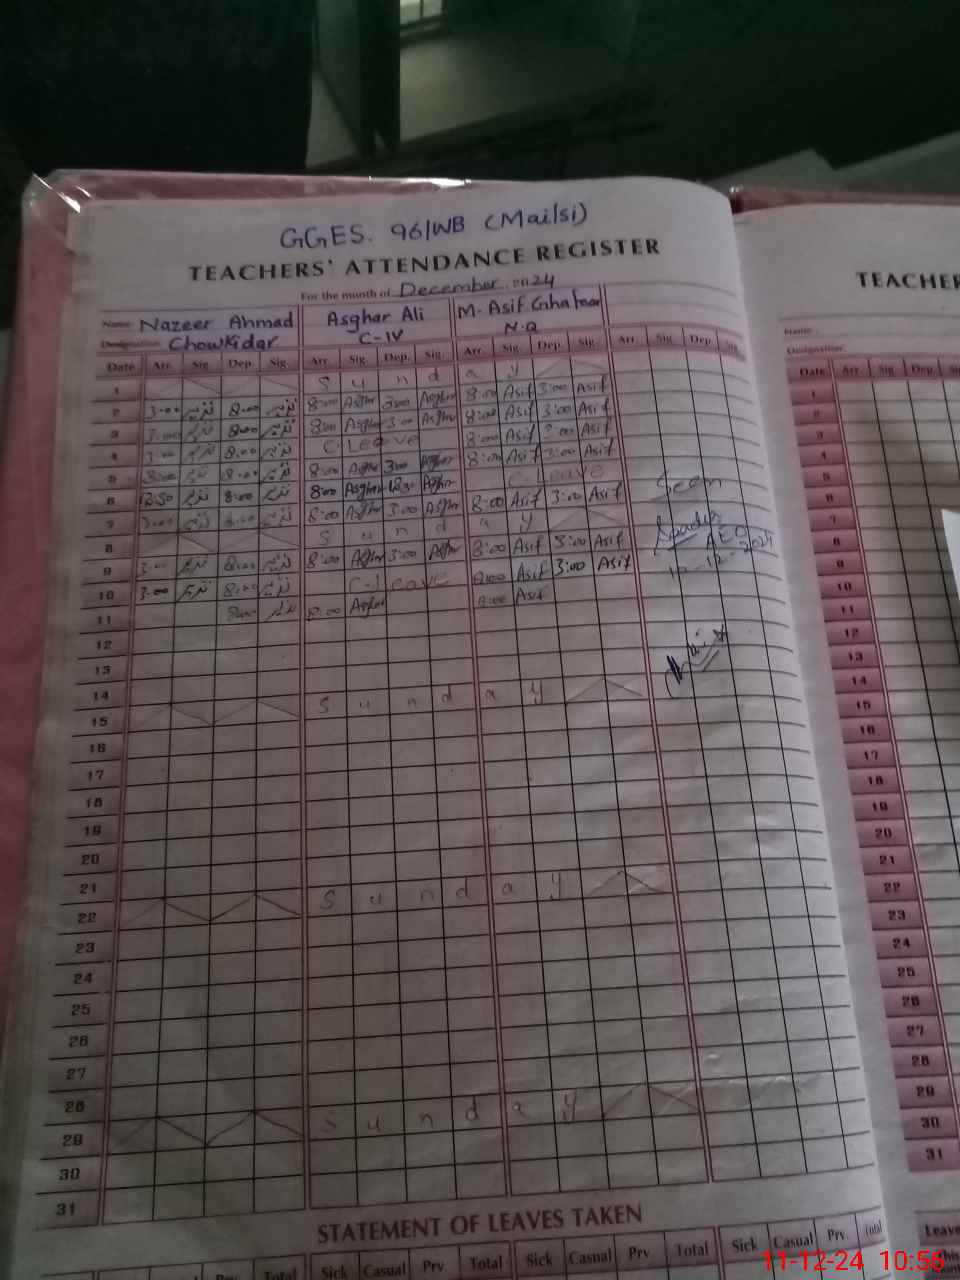 GGES. 96/WB (Mailsi)
TEACHERS' ATTENDANCE REGISTER
For the month of December 2024
Name Nazeer Ahmad Asghar Ali M. Asif Ghafoor
Designation Chowkidar C-IV N.Q
Date Arr. Sig Dep. Sig. Arr. Sig. Dep. Sig. Arr. Sig. Dep. Sig Arr. Sig. Dep. Sig.
1 Sunday
2 3:00 نذیر 8:00 نذیر 8:00 Asghr 3:00 Asghr 8:00 Asif 3:00 Asif
3 3:00 نذیر 8:00 نذیر 8:00 Asghr 3:00 Asghr 8:00 Asif 3:00 Asif
4 3:00 نذیر 8:00 نذیر C.Leave 8:00 Asif 3:00 Asif
5 3:00 نذیر 8:00 نذیر 8:00 Asghr 3:00 Asghr 8:00 Asif 3:00 Asif
6 12:30 نذیر 8:00 نذیر 8:00 Asghr 12:30 Asghr C.Leave
7 3:00 نذیر 8:00 نذیر 8:00 Asghr 3:00 Asghr 8:00 Asif 3:00 Asif
Seen
8 Sunday
9 3:00 نذیر 8:00 نذیر 8:00 Asghr 3:00 Asghr 8:00 Asif 3:00 Asif
AEO
10-12-2024
10 3:00 نذیر 8:00 نذیر C-Leave 8:00 Asif 3:00 Asif
11 8:00 نذیر 8:00 Asghr 8:00 Asif
12
13
14
15 Sunday
16
17
18
19
20
21
22 Sunday
23
24
25
26
27
28
29 Sunday
30
31
STATEMENT OF LEAVES TAKEN
Prv Total Sick Casual Prv. Total Sick Casual Prv Total Sick Casual Prv. Total
TEACHER
Name
Designation
Date Arr. Sig Dep.
1
2
3
4
5
6
7
8
9
10
11
12
13
14
15
16
17
18
19
20
21
22
23
24
25
26
27
28
29
30
31
Leave
11-12-24 10:56